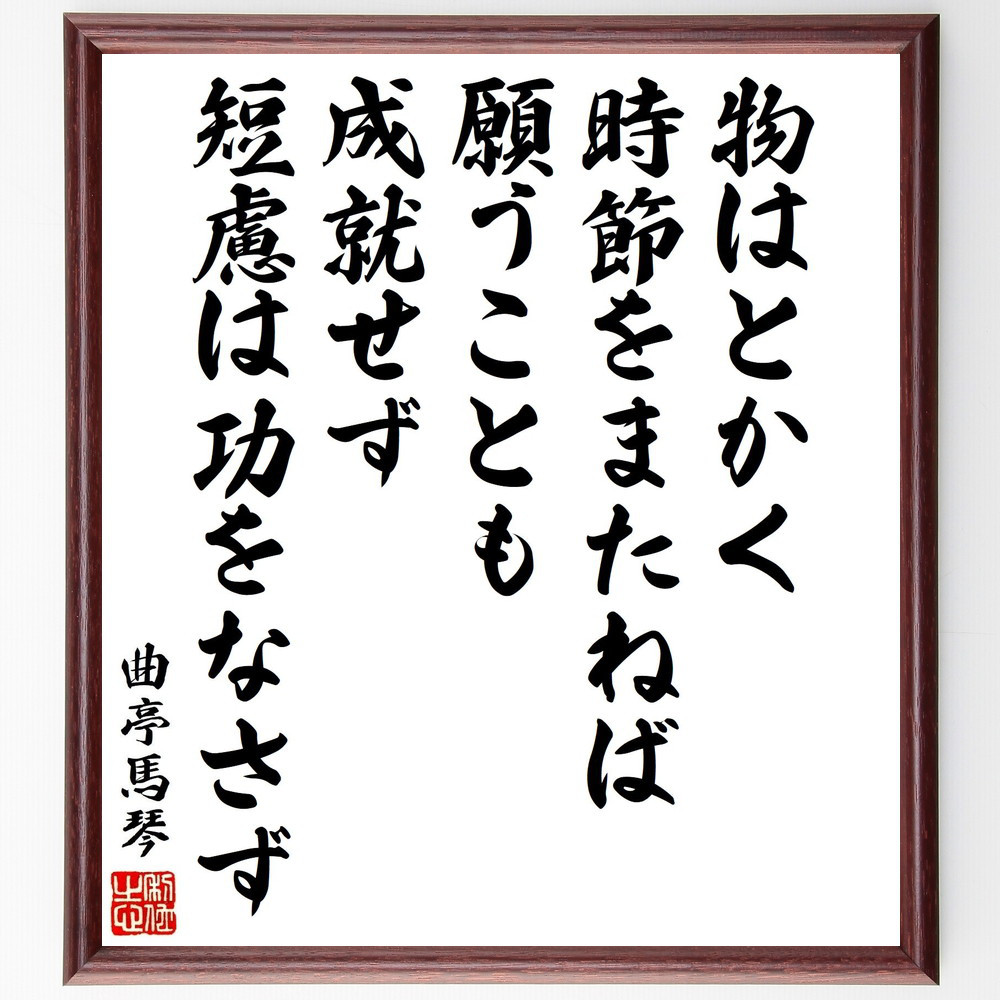 物はとかく
時節をまたねば
願うことも
成就せず
短慮は功をなさず
曲亭馬琴